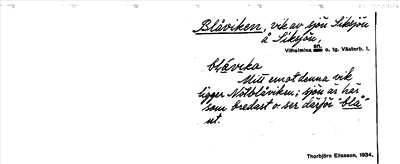 Blåviken, vik av sjön Siksjön
å Siksjön,
Vilhelmina sn. o. tg. Västerb. l.
blåvika
Mitt emot denna vik
ligger Nötblåviken; sjön är här
som bredast o ser därför "blå"
ut.
Thorbjörn Eliasson, 1934.